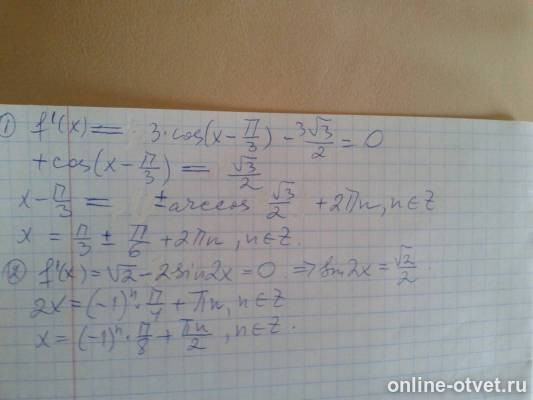 1) f'(x) = 3·cos(x - π/3) - 3√3/2 = 0
+cos(x - π/3) = √3/2
x - π/3 = ± arccos √3/2 + 2πn, n∈Z
x = π/3 ± π/6 + 2πn, n∈Z.
2) f'(x) = √2 - 2sin2x = 0 ⇒ sin2x = √2/2.
2x = (-1)ⁿ · π/4 + πn, n∈Z
x = (-1)ⁿ · π/8 + πn/2, n∈Z.
online-otvet.ru